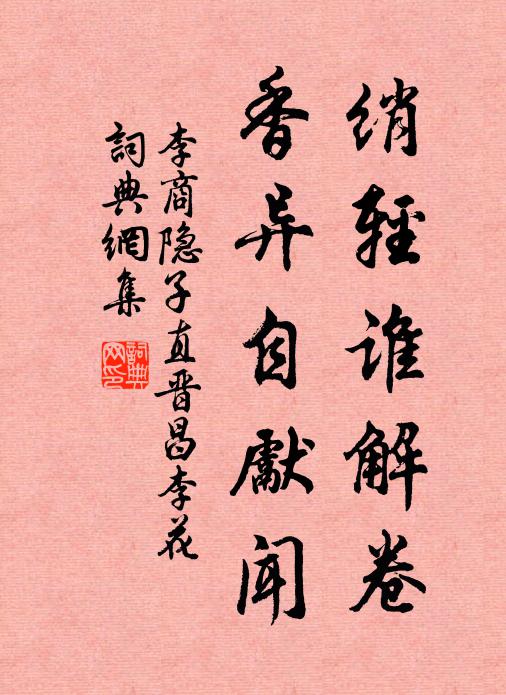 绡輕谁解卷
香异自獻闻
李商隐子直晋昌李花
詞典網集
詞典网印